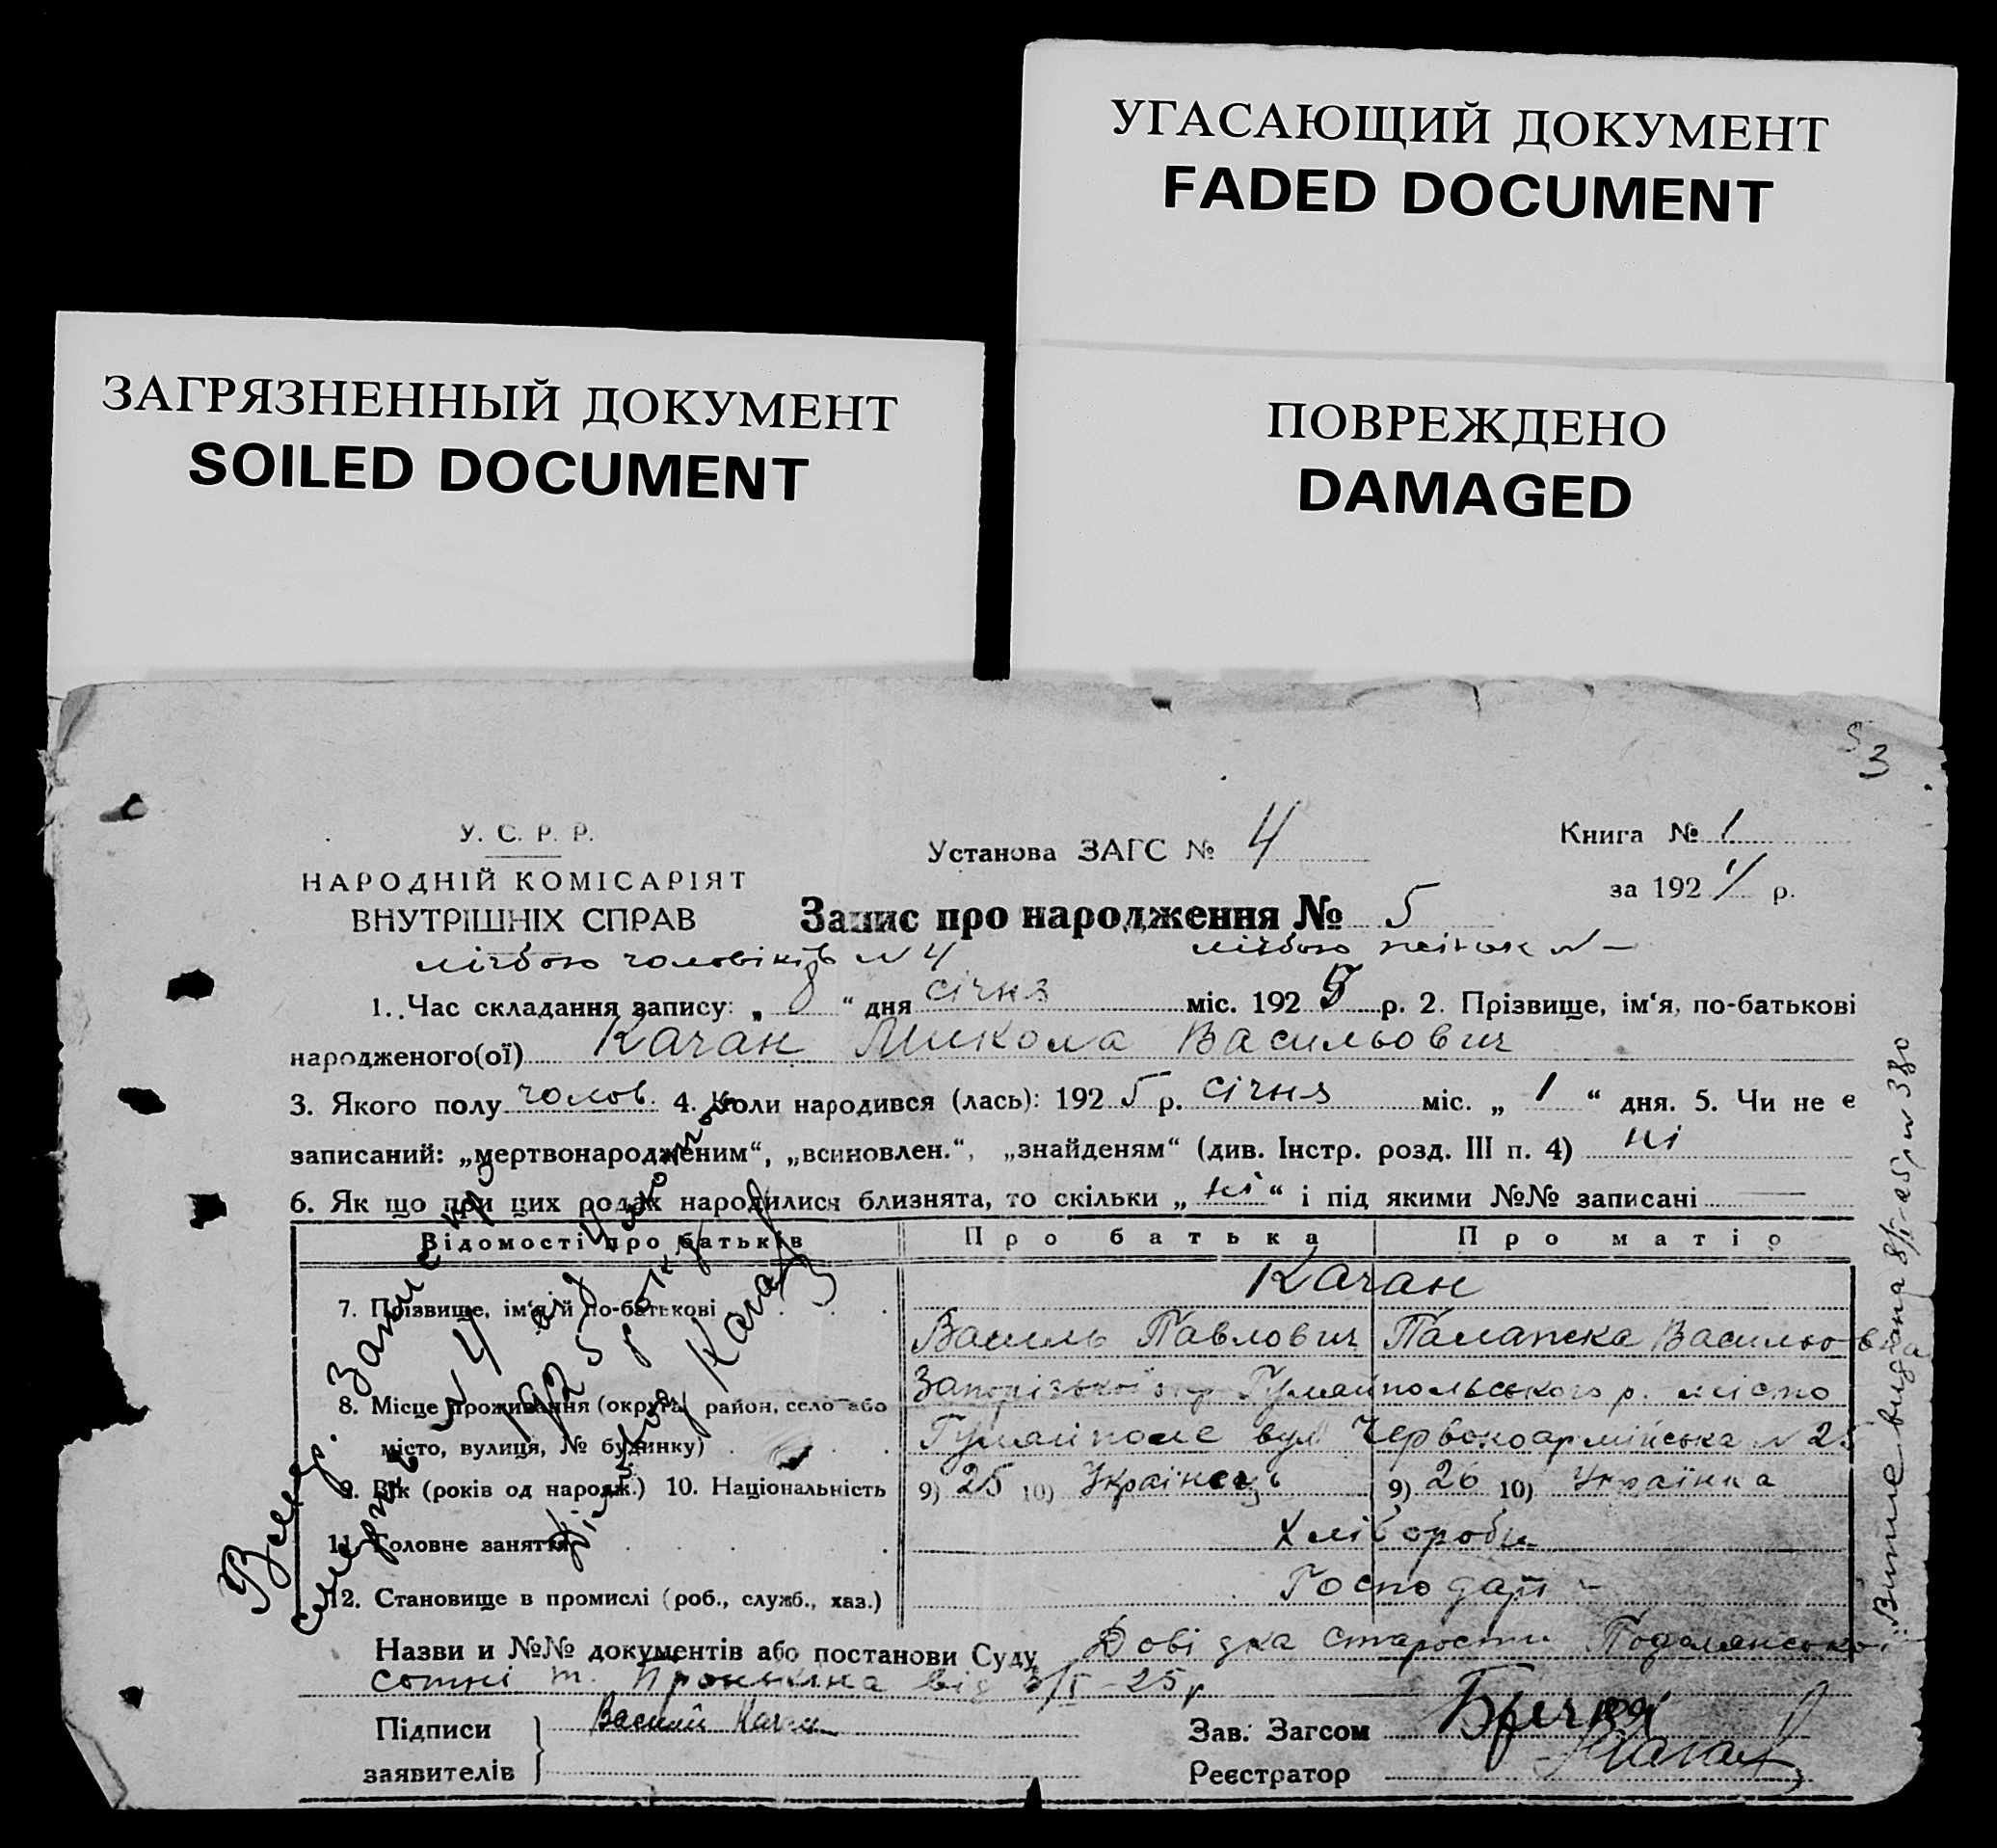 УГАСАЮЩИЙ ДОКУМЕНТ
FADED DOCUMENT
ЗАГРЯЗНЕННЫЙ ДОКУМЕНТ
SOILED DOCUMENT
ПОВРЕЖДЕНО
DAMAGED
3
У. С. Р. Р.
НАРОДНІЙ КОМІСАРІЯТ
ВНУТРІШНІХ СПРАВ
Установа ЗАГС № 4
Книга № 1
за 192 р.
Запис про народження № 5
лічбою чоловіків N 4 лічбою жінок N —
1. Час складання запису: „ 8 “ дня січня міс. 192 5 р. 2. Прізвище, ім‘я, по-батькові
народженого(ої) Качан Микола Васильович
3. Якого полу чолов. 4. Коли народився (лась): 192 5 р. січня міс. „ 1 “ дня. 5. Чи не є
записаний: „мертвонародженим“, „всиновлен.“, „знайденям“ (див. Інстр. розд. III п. 4) ні
6. Як що при цих родах народилися близнята, то скільки „ ні “ і під якими №№ записані —
Відомості про батьків Про батька Про матір
7. Прізвище, ім‘я й по-батькові Качан
Василь Павлович Палажка Васильовна
8. Місце проживання (округа, район, село або Запорізької окр Гуляйпольського р. місто
місто, вулиця, № будинку) Гуляйполе вул Червоноармійська N 25
9. Вік (років од народж.) 10. Національність 9) 25 10) Українець 9) 26 10) Українка
11. Головне заняття Хлібороби
12. Становище в промислі (роб., служб., хаз.) Господарі
Назви и №№ документів або постанови Суду Довідка старости Подолянської
сотні т. від 3/I-25 р
Підписи Василий Качан
заявителів
Зав. Загсом
Реєстратор
смерть N 4 від
1925 року
Витяг видана 8/I-25 р N 380